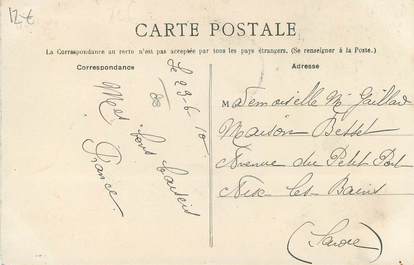 12€
CARTE POSTALE
La Correspondance au recto n'est pas acceptée par tous les pays étrangers. (Se renseigner à la Poste.)
Correspondance
Adresse
Le 29-6-10
France
Mademoiselle M Gaillard
Maison Bettet
Avenue du Petit Port
Aix les Bains
(Savoie)